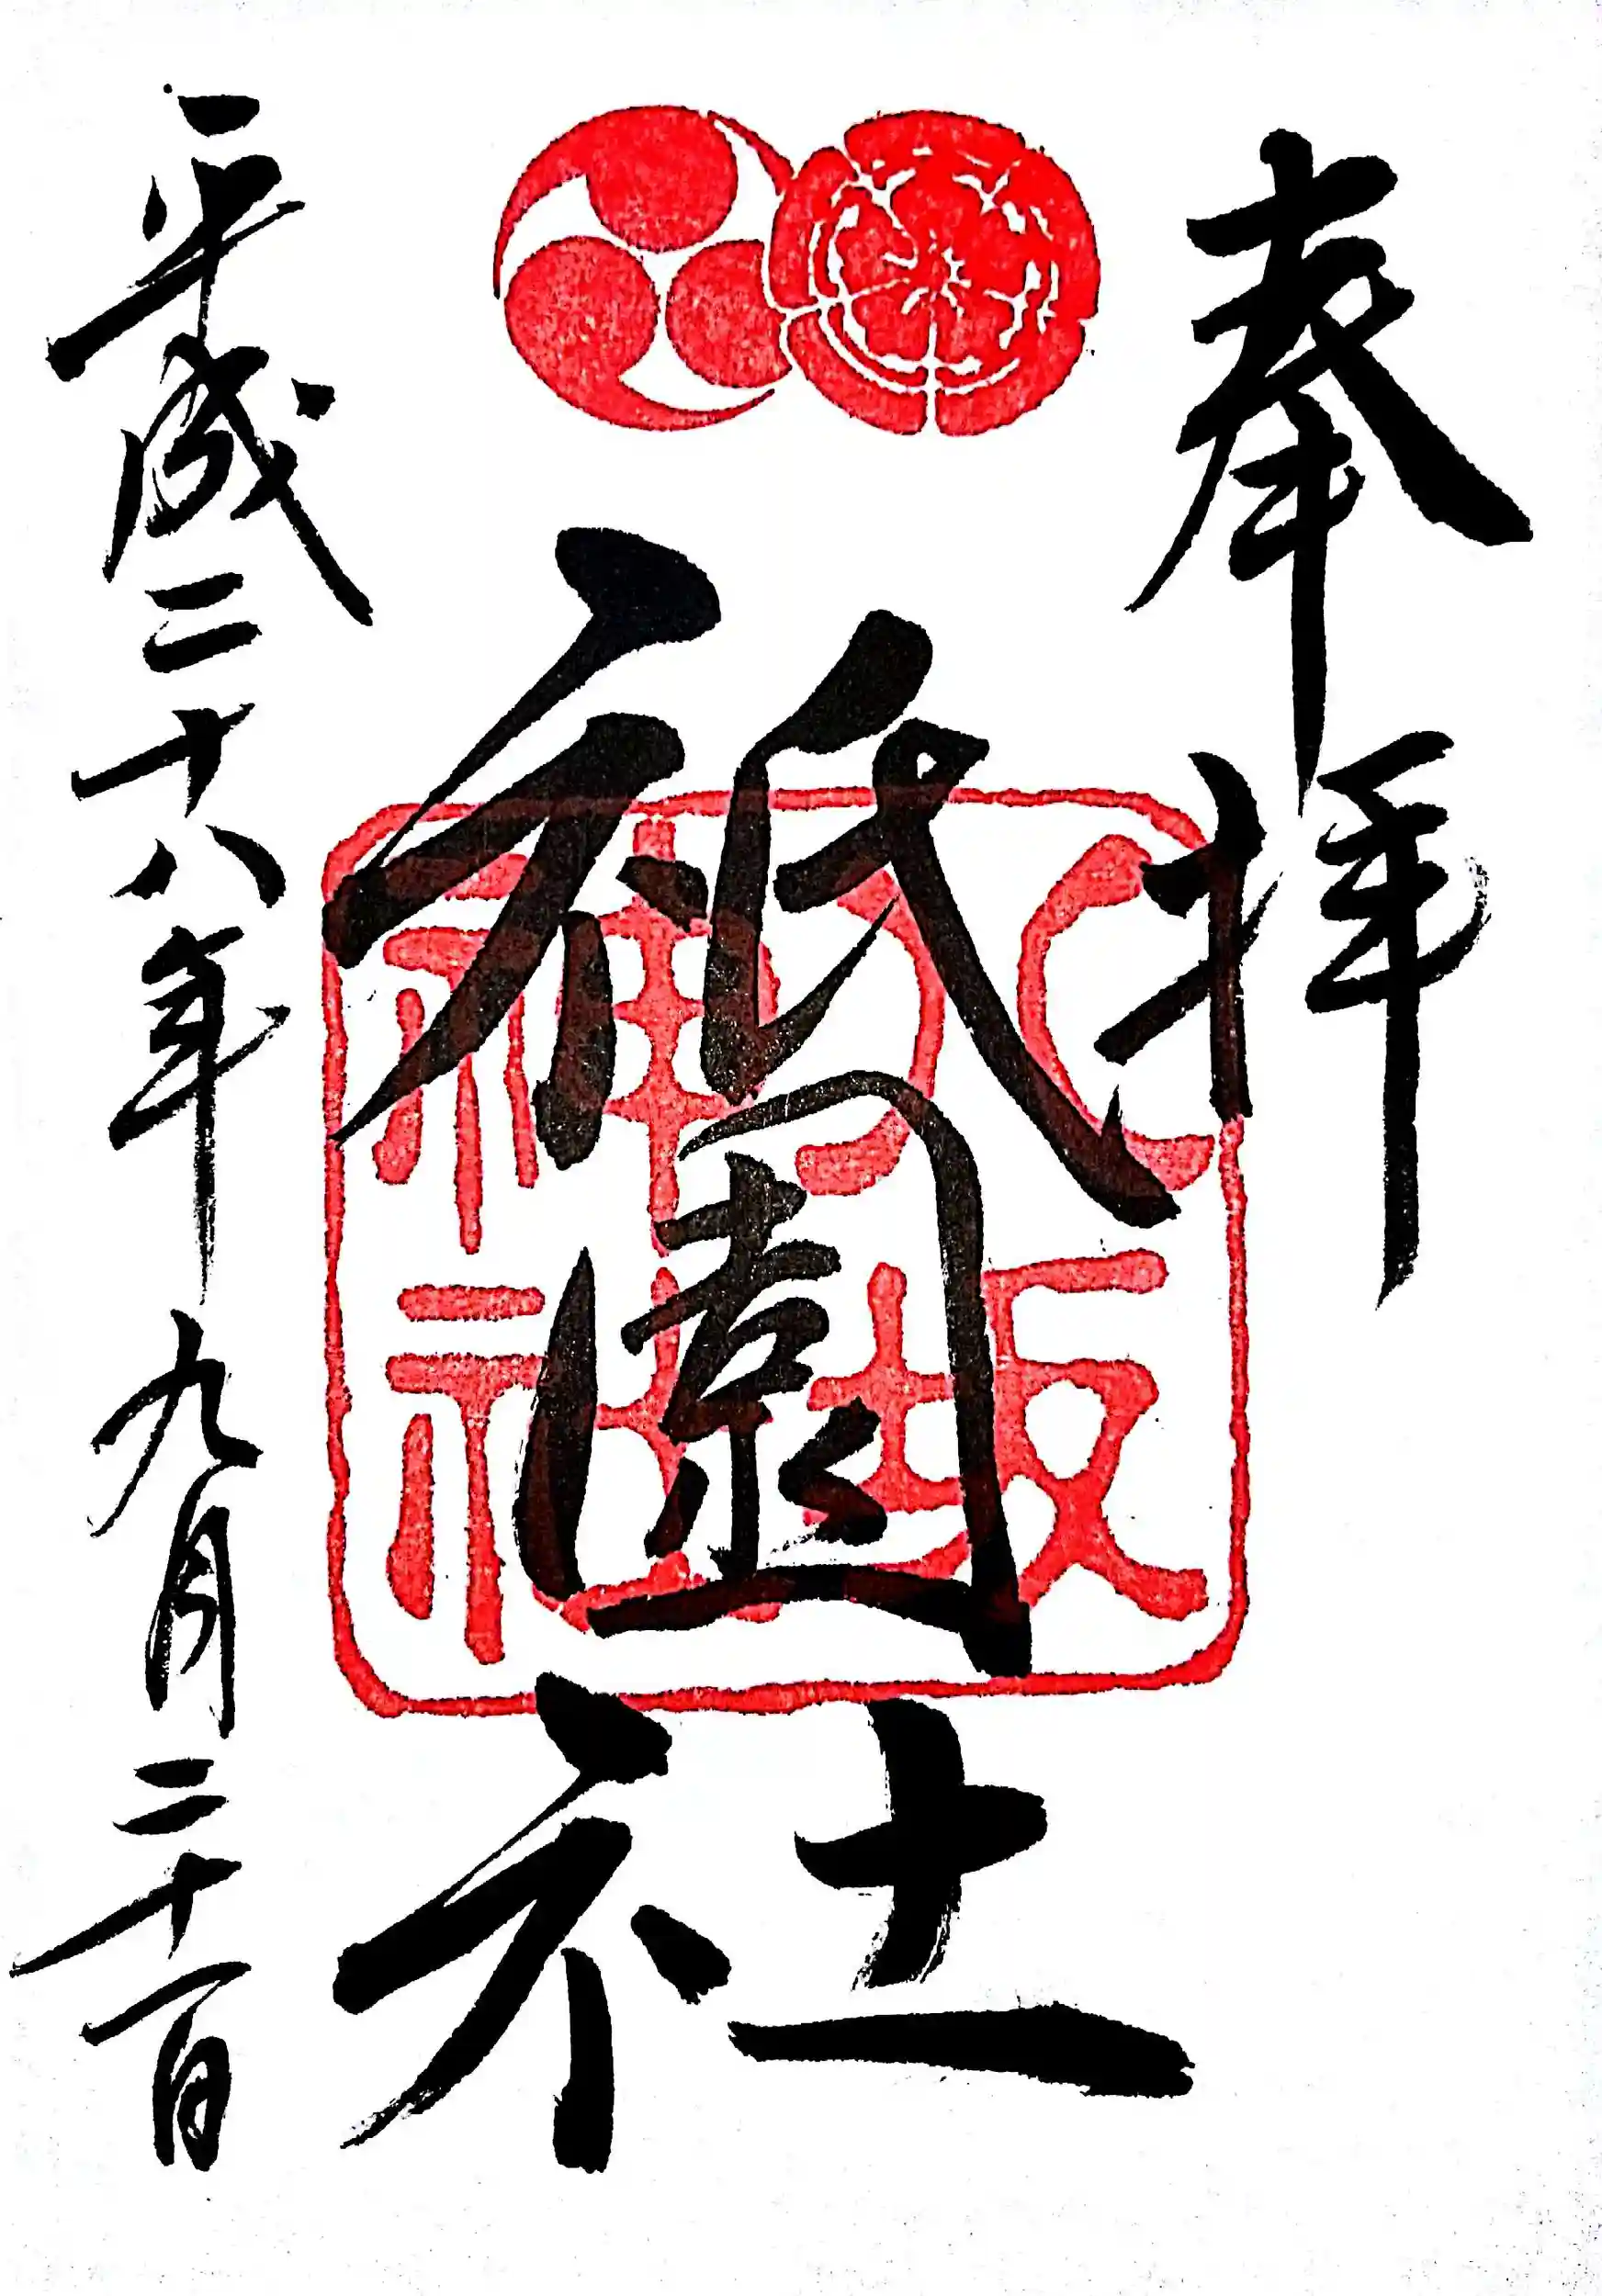 奉拝
八坂神社
祇園社
平成二十八年九月二十一日